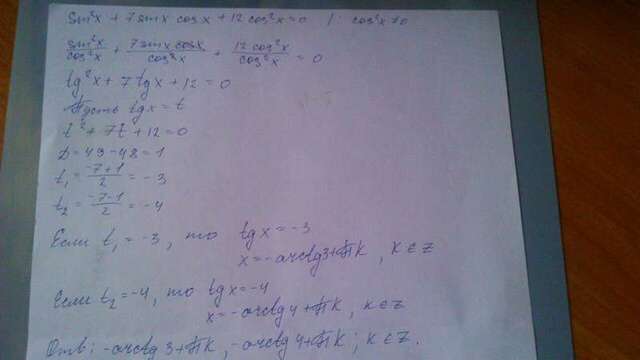 sin²x + 7sinx cosx + 12cos²x = 0 | : cos²x ≠ 0
sin²x/cos²x + 7sinx cosx/cos²x + 12cos²x/cos²x = 0
tg²x + 7tgx + 12 = 0
Пусть tgx = t
t² + 7t + 12 = 0
D = 49 - 48 = 1
t₁ = (-7+1)/2 = -3
t₂ = (-7-1)/2 = -4
Если t₁ = -3, то tgx = -3
x = -arctg3 + πk, k ∈ Z
Если t₂ = -4, то tgx = -4
x = -arctg4 + πk, k ∈ Z
Отв: -arctg 3 + πk, -arctg 4 + πk; k ∈ Z.